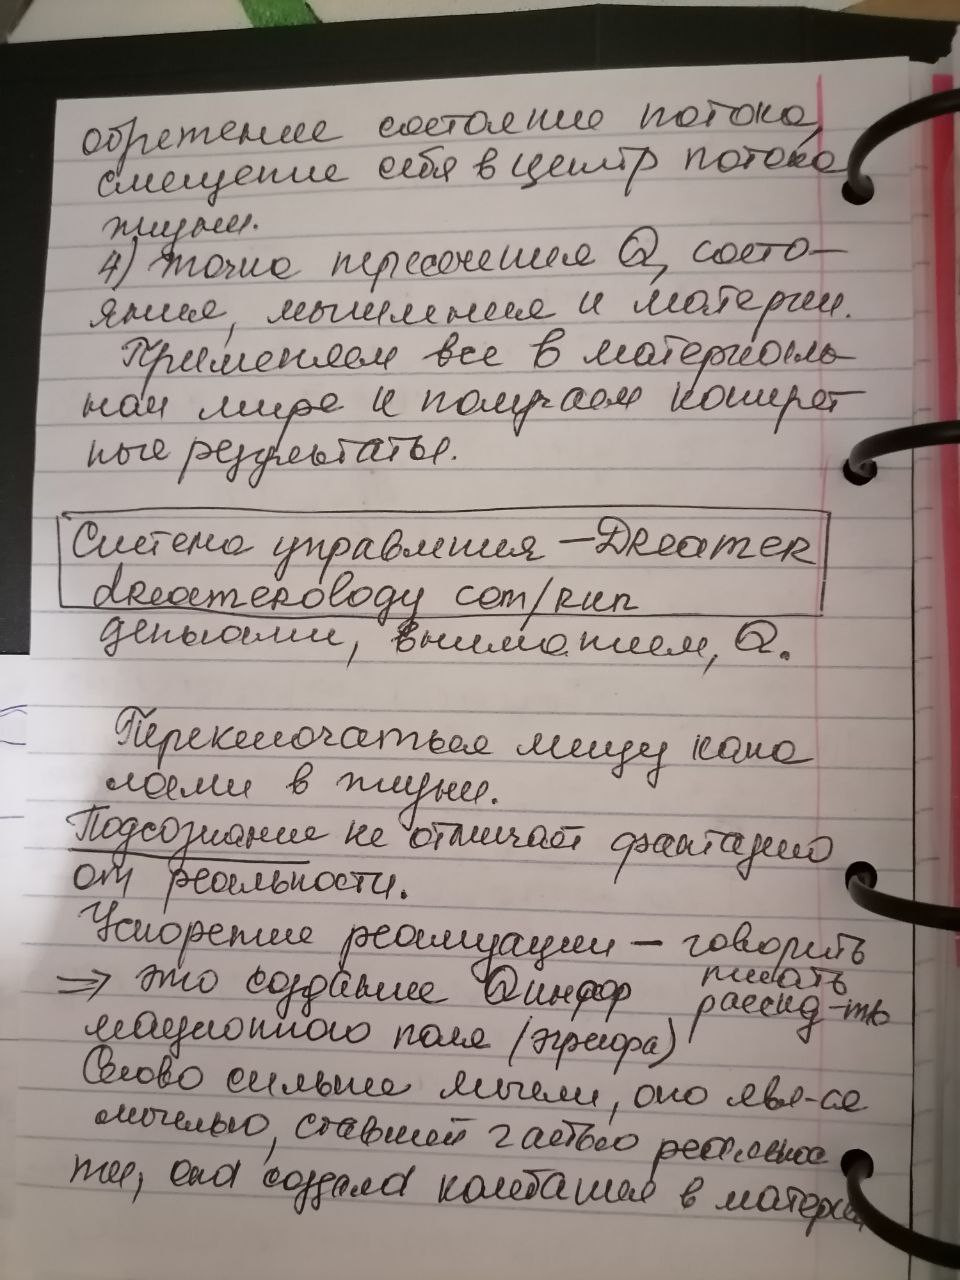 обретение состояние потока,
смещение себя в центр потока
жизни.
4) точка пересечения Q, состо-
яния, мышления и материи.
Применяем все в материаль-
ном мире и получаем конкрет
ные результаты.
Система управления – Dreamer
dreamerology com/run
деньгами, вниманием, Q.
Переключаться между кана
лами в жизни.
Подсознание не отличает фантазию
от реальности.
Ускорение реализации – говорить
писать
⇒ это создание Q инфор рассуд-ть
мационного поля (эгрегора)
Слово сильнее мысли, оно явл-ся
мыслью, ставшей частью реальнос
ти, она создала колебания в материи